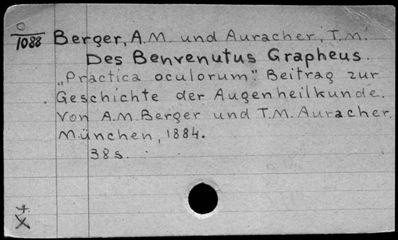 O
1088
Berger, A.M. und Auracher, T.M.
Des Benvenutus Grapheus.
„Practica oculorum“. Beitrag zur
Geschichte der Augenheilkunde.
Von A.M. Berger und T.M. Auracher.
München, 1884.
38 s.